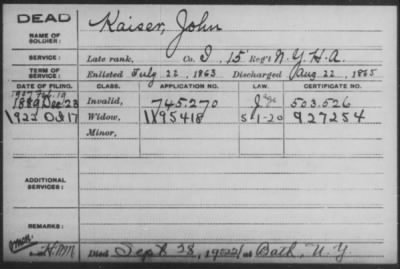 DEAD
Kaiser, John
NAME OF SOLDIER:
SERVICE: Late rank, Co. I, 15 Reg't N.Y.H.A.
TERM OF SERVICE: Enlisted July 22, 1863 Discharged Aug. 22, 1865
DATE OF FILING. CLASS. APPLICATION NO. LAW. CERTIFICATE NO.
1889 Dec 23 Invalid, 745.270 503.526
1922 Oct 17 Widow, 1195418 5-1-20 927254
Minor,
ADDITIONAL SERVICES:
REMARKS:
Died Sept 28, 1922 at Bath, N.Y.